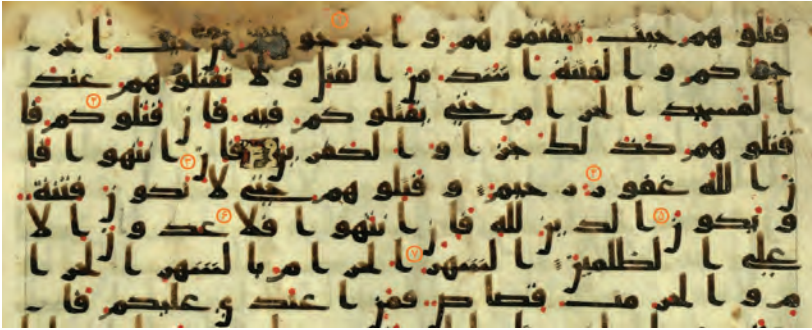 ۱
قتلو هم حيث ثقفتمو هم و ا خر جو هم من حيث ا خر -
جو كم و ا لفتنة ا شد من ا لقتل و لا تقتلو هم عند
ا لمسجد ا لحر ا م حتى يقتلو كم فيه فا ن قتلو كم ۲ فا
قتلو هم كذ لك جز ا و ا لكفر ين فا ن ۳ ا نتهو ا فا
ن ا لله غفو ر ۴ ر حيم و قتلو هم حتى لا تكو ن فتنة
و يكو ن ۵ ا لد ين لله فا ن ا نتهو ا فلا ۶ عد و ن ا لا
على ا لظلمين ا لشهر ۷ ا لحر ا م با لشهر ا لحر ا
م و ا لحر مت قصا ص فمن ا عتد ى عليكم فا -